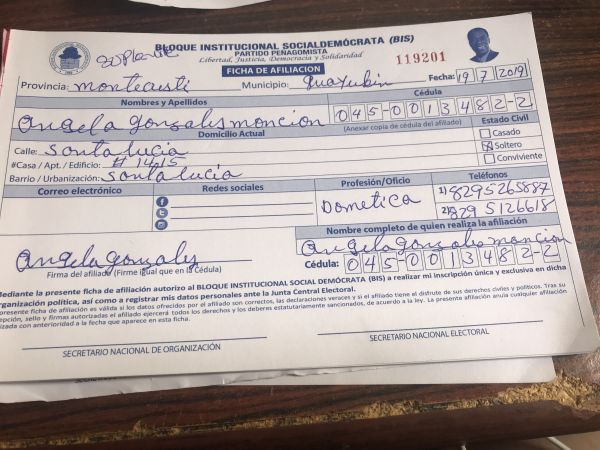 suplente
BLOQUE INSTITUCIONAL SOCIALDEMÓCRATA (BIS)
PARTIDO PEÑAGOMISTA
Libertad, Justicia, Democracia y Solidaridad
119201
FICHA DE AFILIACION
Provincia: montecristi Municipio: Guayubin Fecha: 19 7 2019
Nombres y Apellidos Cédula
angela gonzalis moncion 045-0013482-2
(Anexar copia de cédula del afiliado)
Domicilio Actual Estado Civil
Calle: Santa lucia
Casado
Soltero
Conviviente
#Casa / Apt. / Edificio: # 1415
Barrio / Urbanización: santa lucia
Correo electrónico Redes sociales Profesión/Oficio Teléfonos
Dometica
1) 8295265887
2) 829 5126618
Nombre completo de quien realiza la afiliación
angela gonzalis moncion
Cédula: 045-0013482-2
angela gonzalez
Firma del afiliado (Firme igual que en la Cédula)
Mediante la presente ficha de afiliación autorizo al BLOQUE INSTITUCIONAL SOCIAL DEMÓCRATA (BIS) a realizar mi inscripción única y exclusiva en dicha
organización política, así como a registrar mis datos personales ante la Junta Central Electoral.
presente ficha de afiliación es válida si los datos ofrecidos por el afiliado son correctos, las declaraciones veraces y si el afiliado tiene el disfrute de sus derechos civiles y políticos. Tras su
sello y firmas autorizadas el afiliado ejercerá todos los derechos y los deberes estatutariamente sancionados, de acuerdo a la ley. La presente afiliación anula cualquier afiliación
con anterioridad a la fecha que aparece en esta ficha.
SECRETARIO NACIONAL DE ORGANIZACIÓN
SECRETARIO NACIONAL ELECTORAL